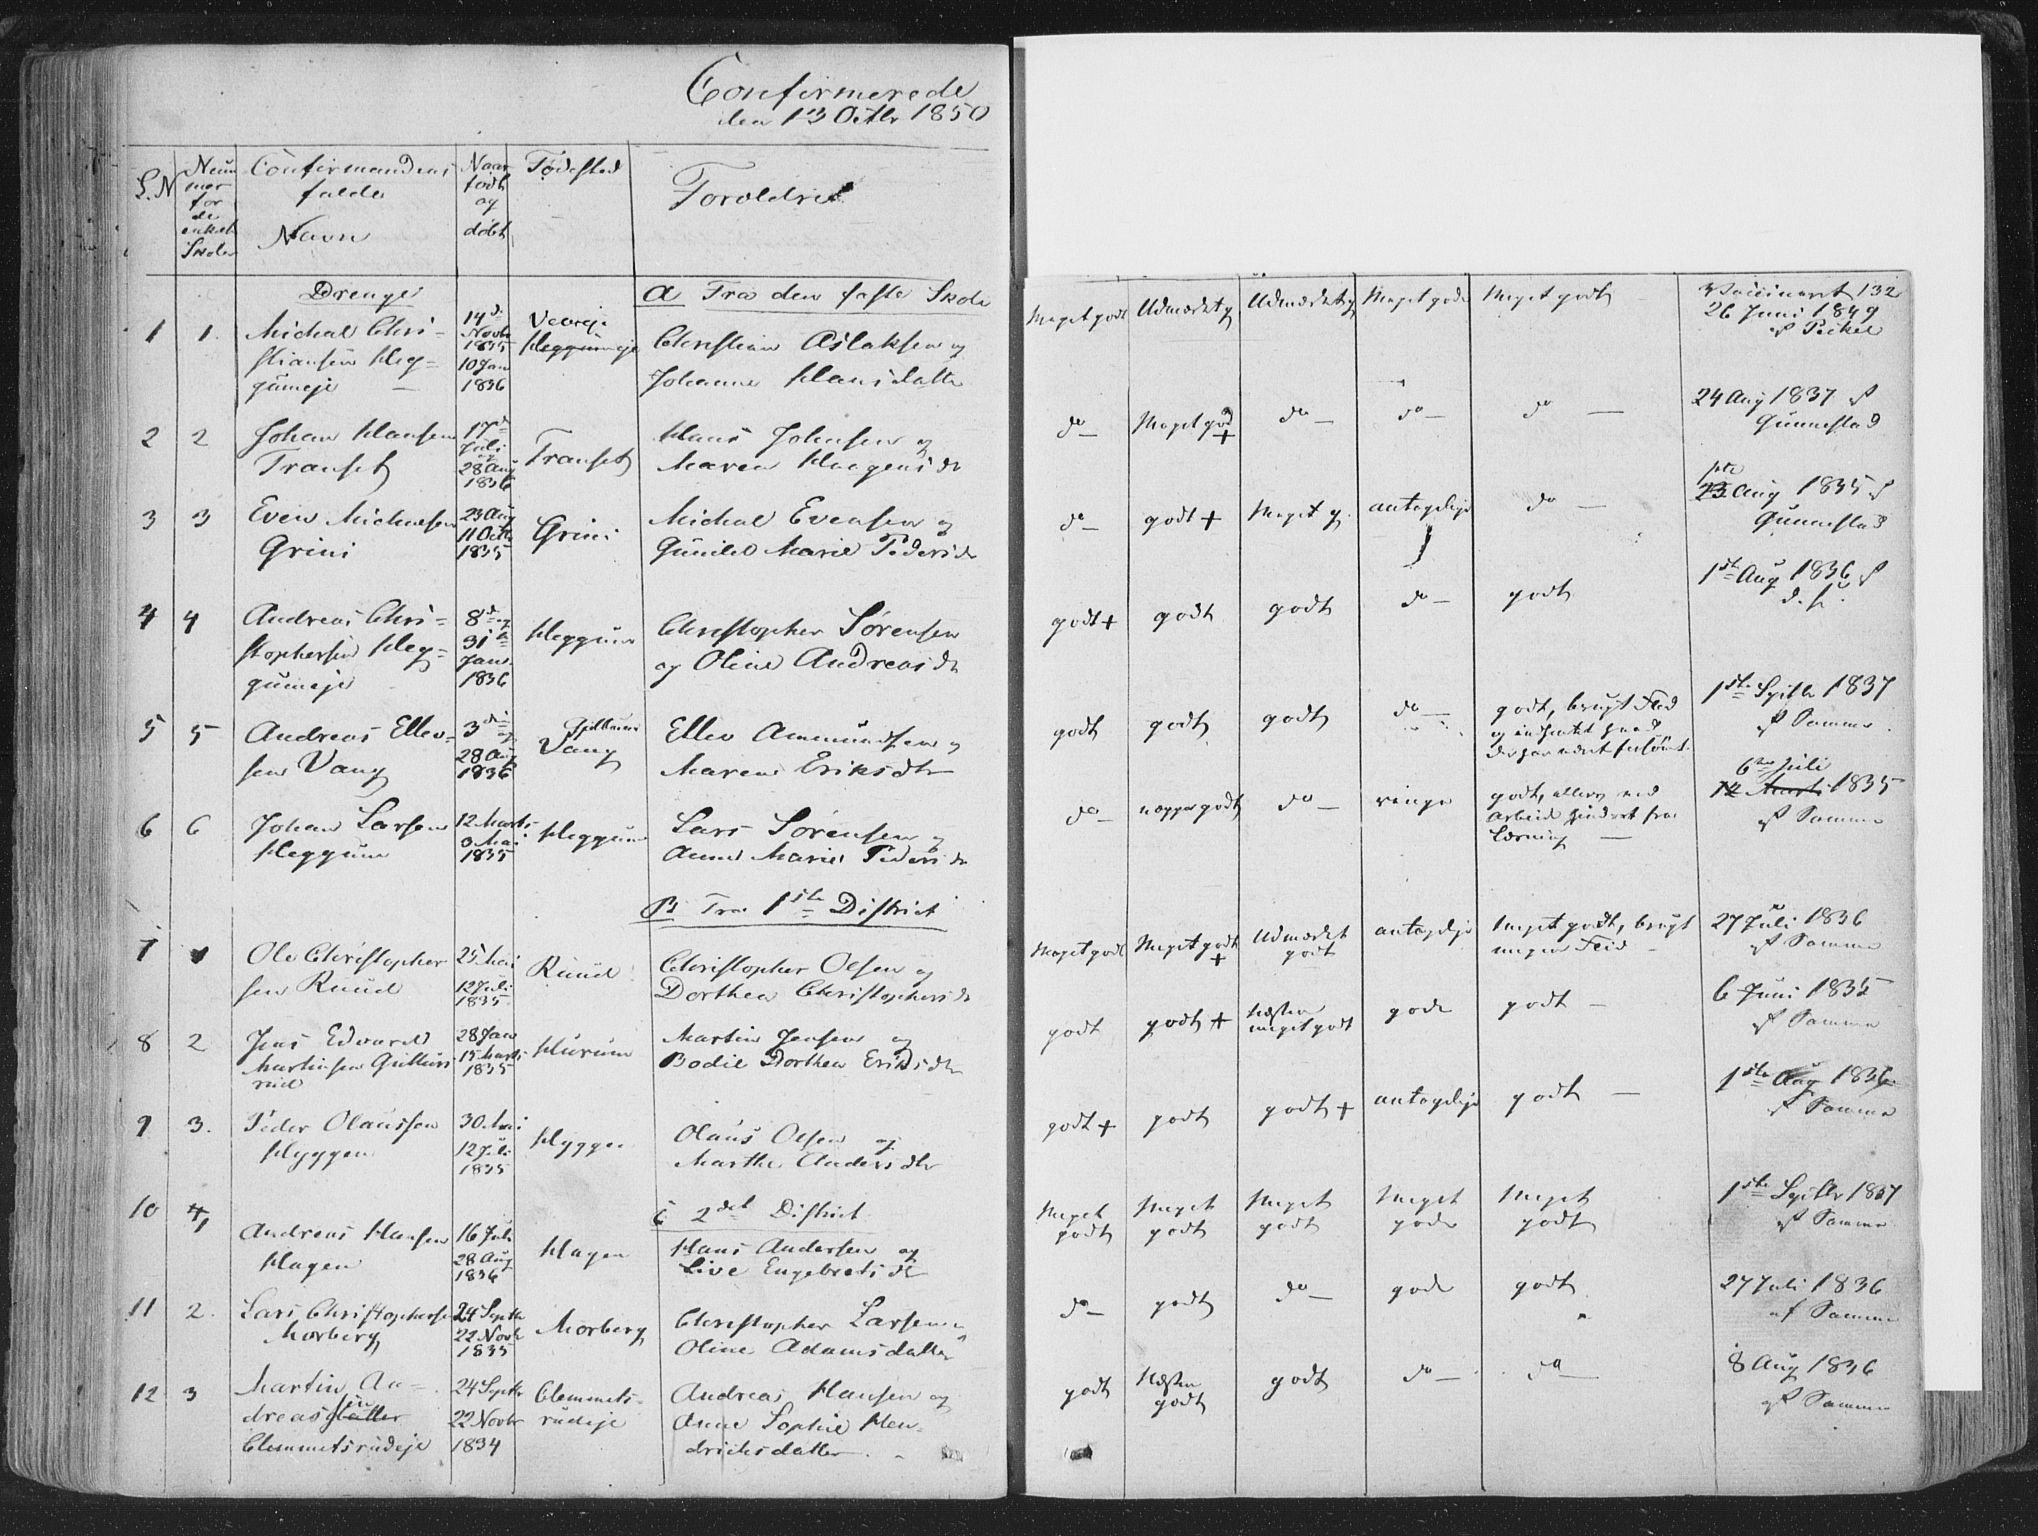 Confirmerede
den 13 Octbr 1850
L.N
Num
mer
for
de
enkelt
Skoler
Confirmandens
fulde
Navn
Naar
født
og
døbt
Fødested
Foreldre
Drenge
A Fra den faste Skole
1 1. Michal Chri-
stiansen Heg-
gumeje
14de
Novbr
1835
10 Jan
1836
Heggumeje
Christian Aslaksen og
Johanne Hansdatter
Meget godt Udmærket g Udmærket g Meget gode Meget godt
Vaccineret 132
26 Juni 1849
af Pickel
2 2 Johan Hansen
Transet
17de
Juli
og
28 Aug
1836
Transet
Hans Johnsen og
Maren Haagensdr
do Meget god + do do do
24 Aug 1837 af
Gunnestad
3 3 Even Michelsen
Grini
23 Aug
11 Octb
1835
Grini
Michal Evensen og
Gunild Marie Pedersdr
do godt + Meget g. antagelige do
23 Aug 1835 af
Gunnestad
4 4 Andreas Chri-
stophersen Heg-
gumeje
8de og
31te
Janr
1836
Heggum
Christopher Sørensen
og Oline Andreasdr
godt + godt godt do godt
1ste Aug 1836 af
d.s.
5 5 Andreas Ellev-
sen Vang
3die og
28 Aug
1836
Vang
Ellev Amundsen og
Maren Eriksdtr
godt godt godt do godt, brugt Flid
og indhentet hvad
der har været forsømt.
1ste Septbr 1837
af Samme
6 6 Johan Larsen
Heggum
12 Marts
3 Mai
1835
Heggum
Lars Sørensen og
Anne Marie Pedersdr
do neppe godt do ringe godt, ellers ved
Arbeide hindret fra
Læsning
6te Juli
14 Marts 1835
af Samme
B Fra 1ste District
7 1 Ole Christopher
sen Ruud
25 Mai
12 Juli
1835
Ruud
Christopher Olsen og
Dorthea Christophersdr
Meget godt Meget godt + Udmærket godt antagelige Meget godt, brugt
megen Flid
27 Juli 1836
af Samme
8 2 Jens Edvard
Martinsen Gullhus
rud
28 Jan
15 Marts
1835
Hurum
Martin Jensen og
Bodil Dorthea Eriksdtr
godt godt + Næsten meget godt gode godt
6 Juni 1835
af Samme
9 3. Peder Olaussen
Hyggen
30 Mai
12 Juli
1835
Hyggen
Olaus Olsen og
Marthe Andersdtr
godt + godt godt + antagelige godt
1ste Aug 1836
af Samme
C 2det District
10 4 Andreas Hansen
Hagen
16 Juli
28 Aug
1836
Hagen
Hans Andersen og
Live Engebretsdtr
Meget godt Meget godt Meget godt Meget gode Meget godt
1ste Septbr 1837
af Samme
11 2. Lars Christophersen
Morberg
24 Septbr
22 Novbr
1835
Morberg
Christopher Larsen og
Oline Adamsdatter
do godt do gode godt
27 Juli 1836
af Samme
12 3 Martin An-
dreassen
Clemmetsrudeje
24 Septbr
22 Novbr
1834
Clemmets-
rudeje
Andreas Hansen og
Anne Sophie Hen-
drichsdatter
godt Næsten godt godt do do
8 Aug 1836
af Samme